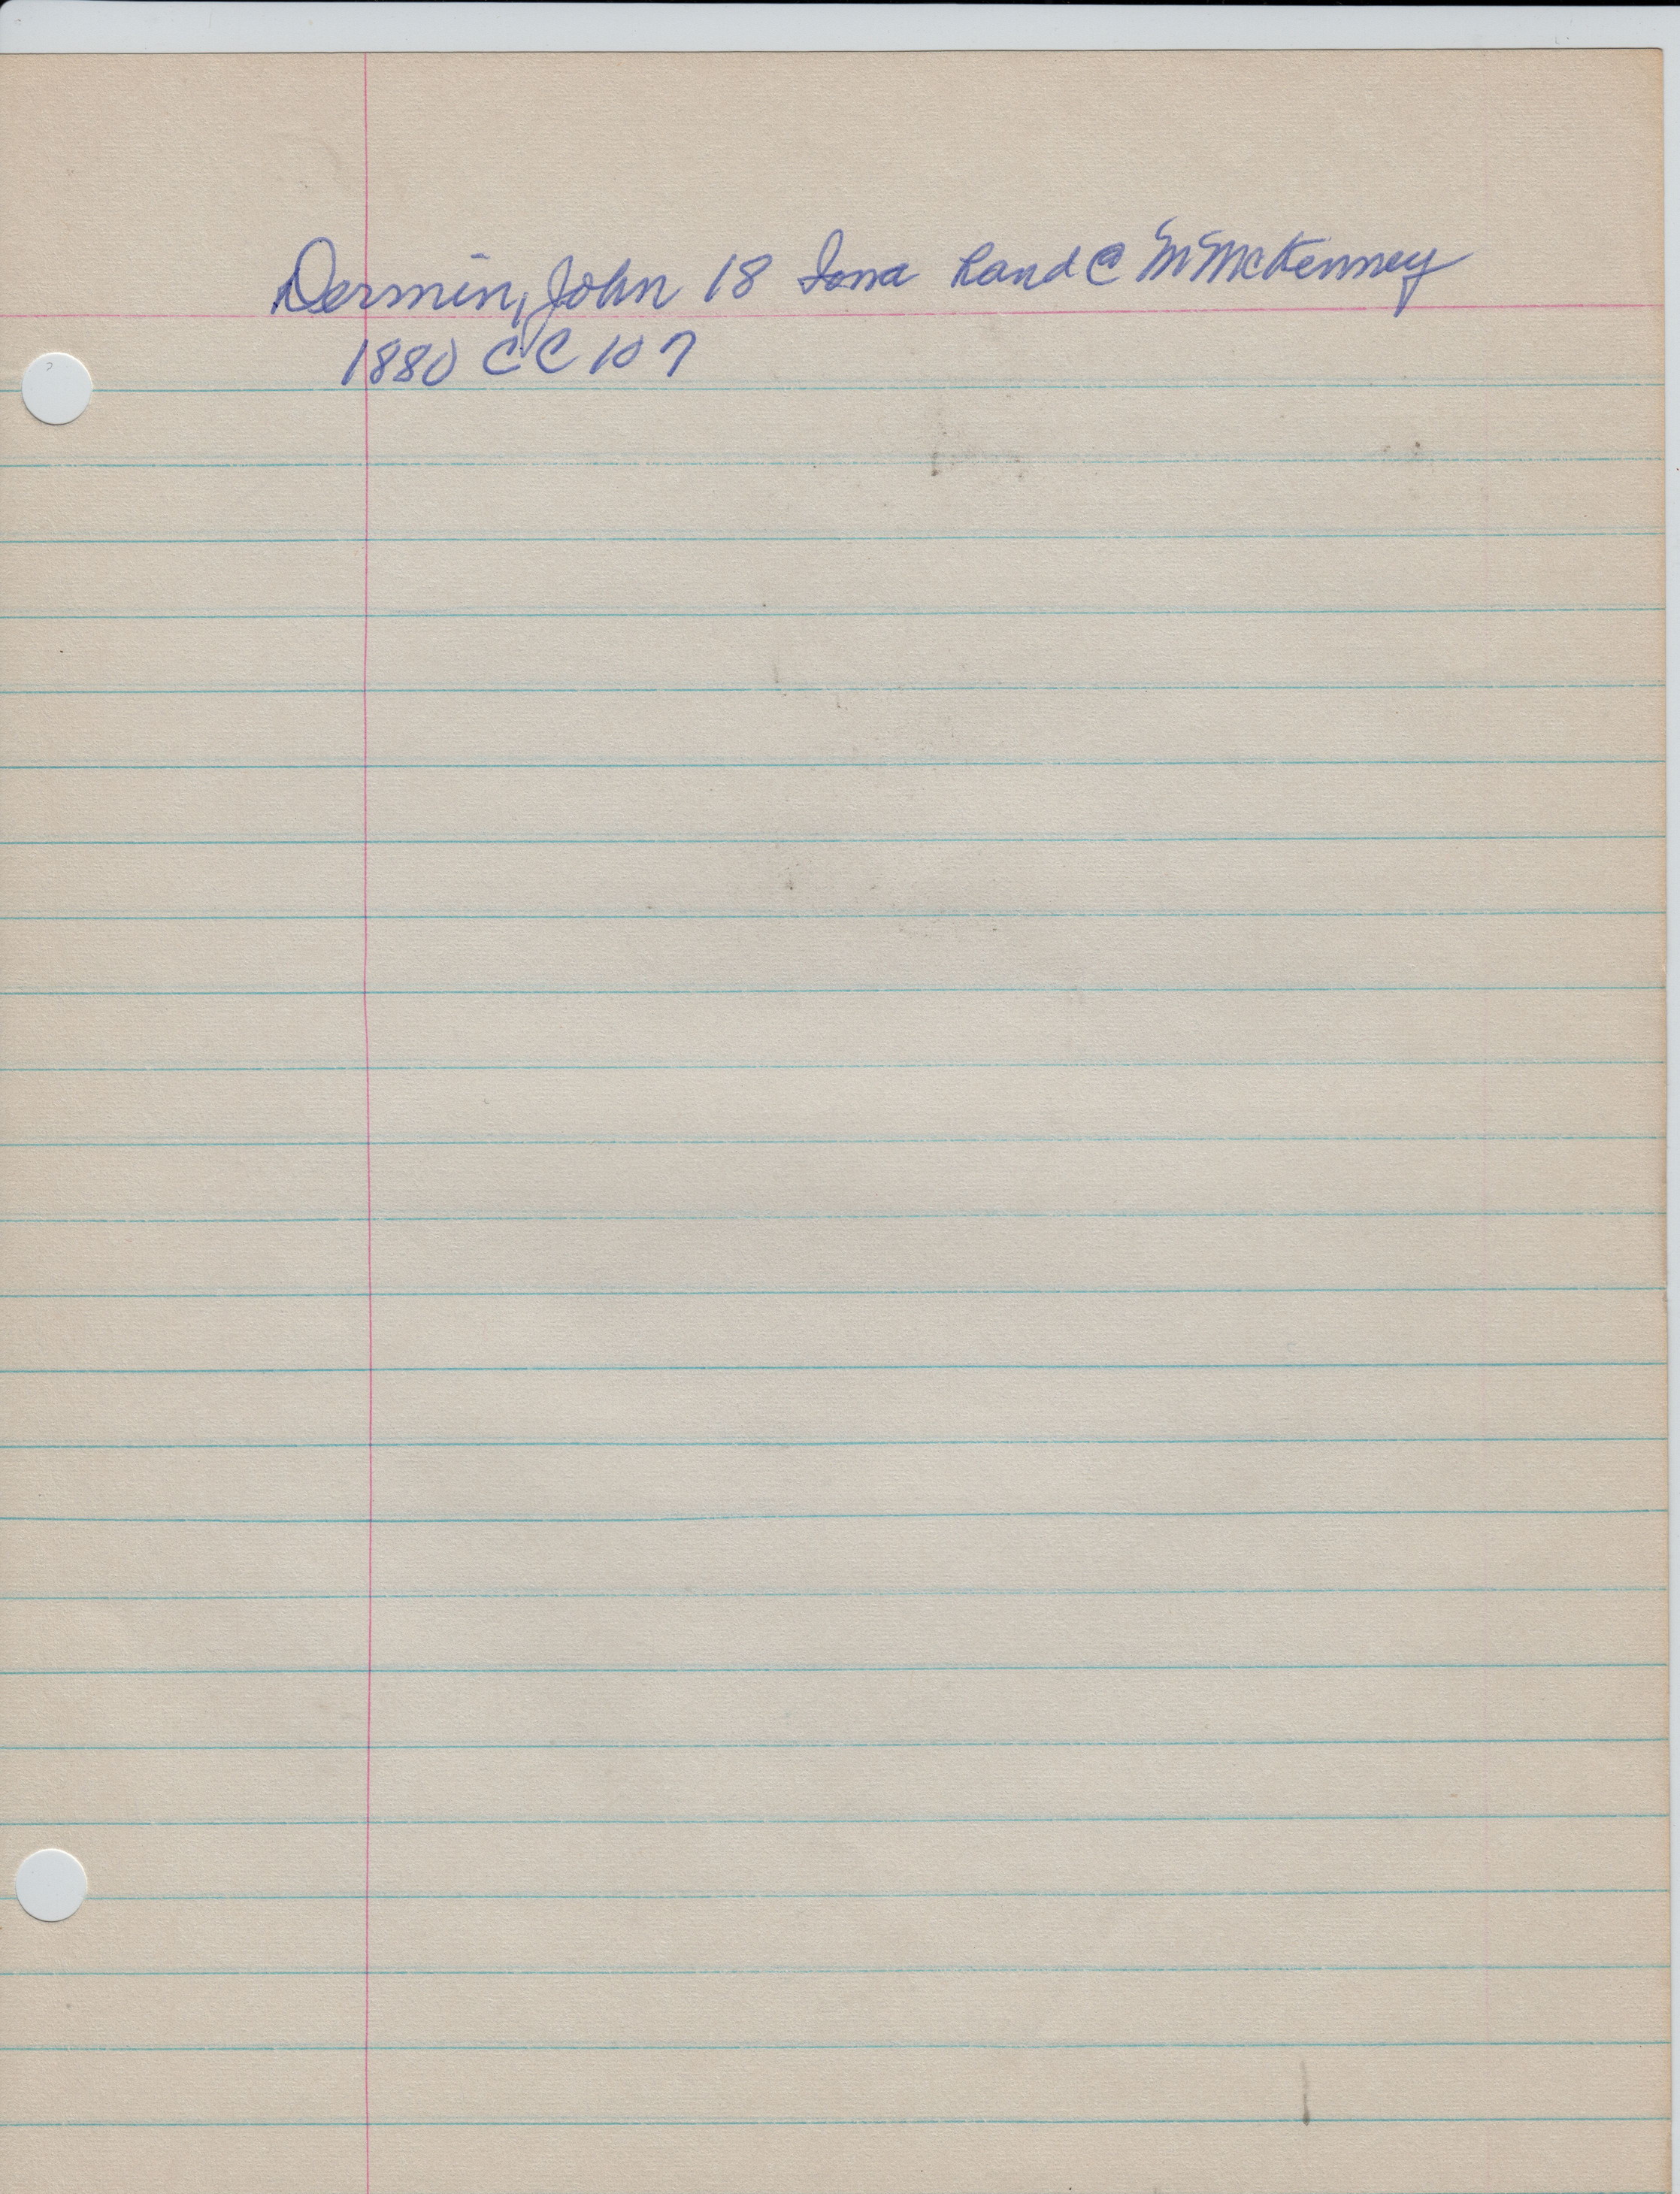 Dermin, John 18 Iowa hand @ M McKenney
1880 CC 107